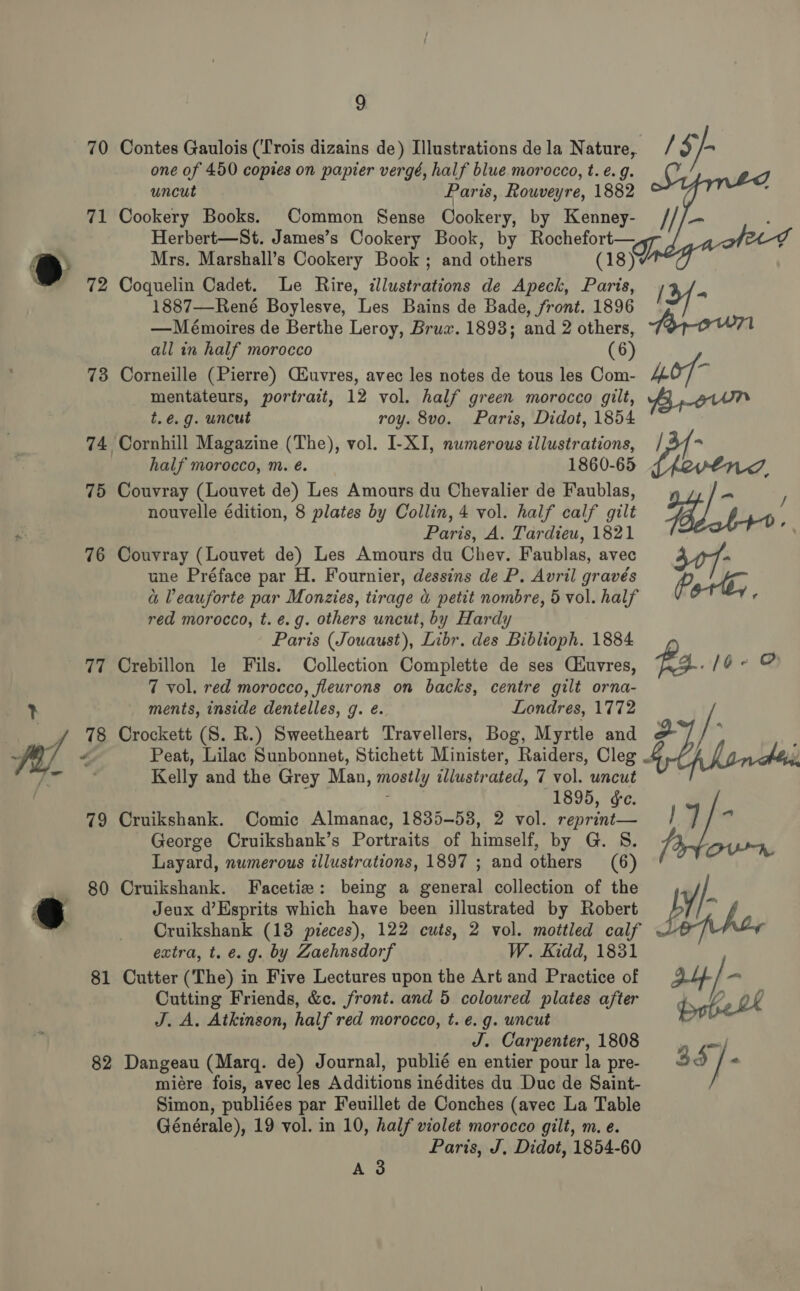 9
70 Contes Gaulois (Trois dizains de) Illustrations de la Nature, 15/-
one of 450 copies on papier vergé, half blue morocco, t. e. g.
uncut Paris, Rouveyre, 1882
71 Cookery Books. Common Sense Cookery, by Kenney- 11/-
Herbert—St. James's Cookery Book, by Rochefort—
Mrs. Marshall's Cookery Book ; and others (18)
72 Coquelin Cadet. Le Rire, illustrations de Apeck, Paris, 13/-
1887—René Boylesve, Les Bains de Bade, front. 1896
—Mémoires de Berthe Leroy, Brux. 1893; and 2 others, Brown
all in half morocco (6)
73 Corneille (Pierre) Œuvres, avec les notes de tous les Com- 40/-
mentateurs, portrait, 12 vol. half green morocco gilt, Brown
t. e. g. uncut roy. 8vo. Paris, Didot, 1854
74 Cornhill Magazine (The), vol. I-XI, numerous illustrations, 13/-
half morocco, m. e. 1860-65
75 Couvray (Louvet de) Les Amours du Chevalier de Faublas, 24/-
nouvelle édition, 8 plates by Collin, 4 vol. half calf gilt
Paris, A. Tardieu, 1821
76 Couvray (Louvet de) Les Amours du Chev. Faublas, avec 30/-
une Préface par H. Fournier, dessins de P. Avril gravés
à l'eauforte par Monzies, tirage à petit nombre, 5 vol. half
red morocco, t. e. g. others uncut, by Hardy
Paris (Jouaust), Libr. des Biblioph. 1884
77 Crebillon le Fils. Collection Complette de ses Œuvres, £3.. 10 - 0
7 vol. red morocco, fleurons on backs, centre gilt orna-
ments, inside dentelles, g. e. Londres, 1772
78 Crockett (S. R.) Sweetheart Travellers, Bog, Myrtle and 27/-
Peat, Lilac Sunbonnet, Stichett Minister, Raiders, Cleg
Kelly and the Grey Man, mostly illustrated, 7 vol. uncut
1895, &c.
79 Cruikshank. Comic Almanac, 1835–53, 2 vol. reprint— 17/-
George Cruikshank's Portraits of himself, by G. S.
Layard, numerous illustrations, 1897 ; and others (6) Brown
80 Cruikshank. Facetiæ : being a general collection of the
Jeux d'Esprits which have been illustrated by Robert
Cruikshank (13 pieces), 122 cuts, 2 vol. mottled calf
extra, t. e. g. by Zaehnsdorf W. Kidd, 1831
81 Cutter (The) in Five Lectures upon the Art and Practice of 24/-
Cutting Friends, &c. front. and 5 coloured plates after
J. A. Atkinson, half red morocco, t. e. g. uncut
J. Carpenter, 1808
82 Dangeau (Marq. de) Journal, publié en entier pour la pre- 35/-
mière fois, avec les Additions inédites du Duc de Saint-
Simon, publiées par Feuillet de Conches (avec La Table
Générale), 19 vol. in 10, half violet morocco gilt, m. e.
Paris, J. Didot, 1854-60
A 3